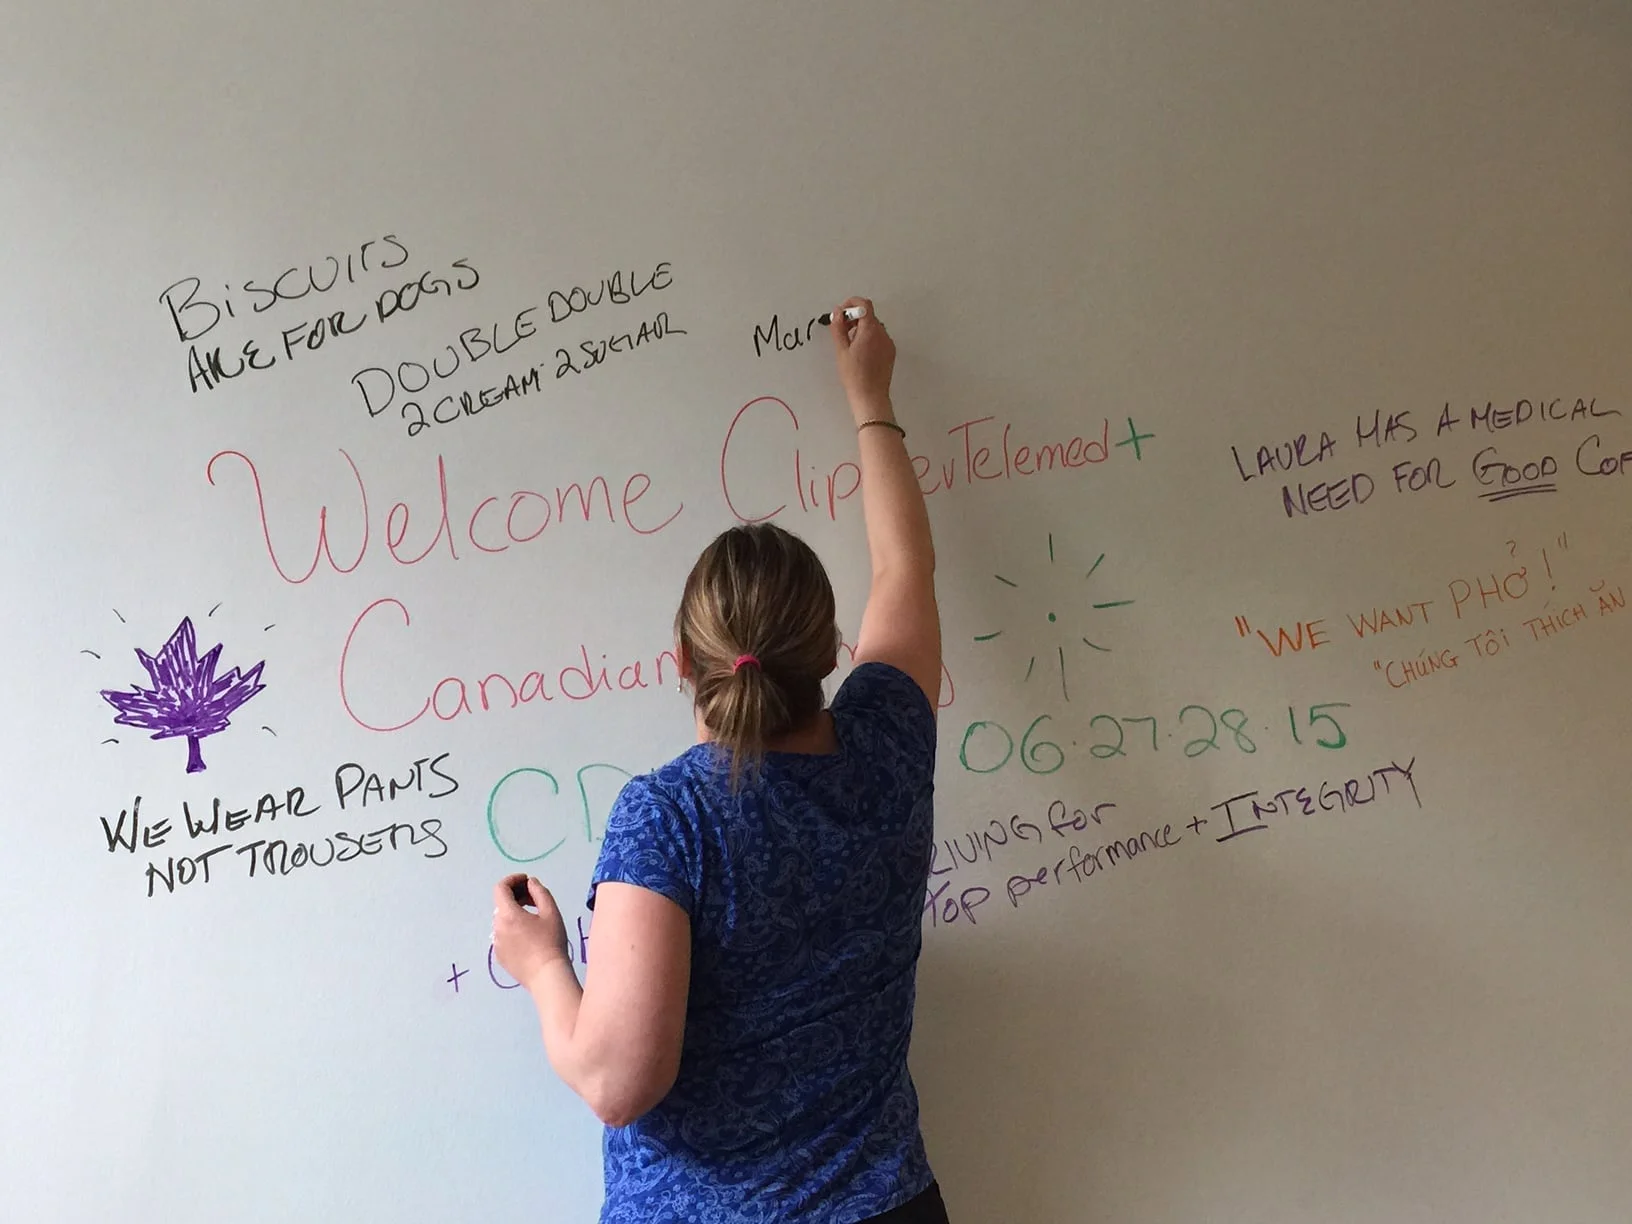 BiSCUITS
ARE FOR DOGS
DOUBLE DOUBLE
2 CREAM · 2 SUGAR
Mar
Welcome ClipperTelemed+
Canadian
LAURA HAS A MEDICAL
NEED FOR GOOD
"WE WANT PHỞ!"
"CHÚNG TÔI THÍCH ĂN
06·27·28·15
WE WEAR PANTS
NOT TROUSERS
FOR
TOP performance + INTEGRITY
+